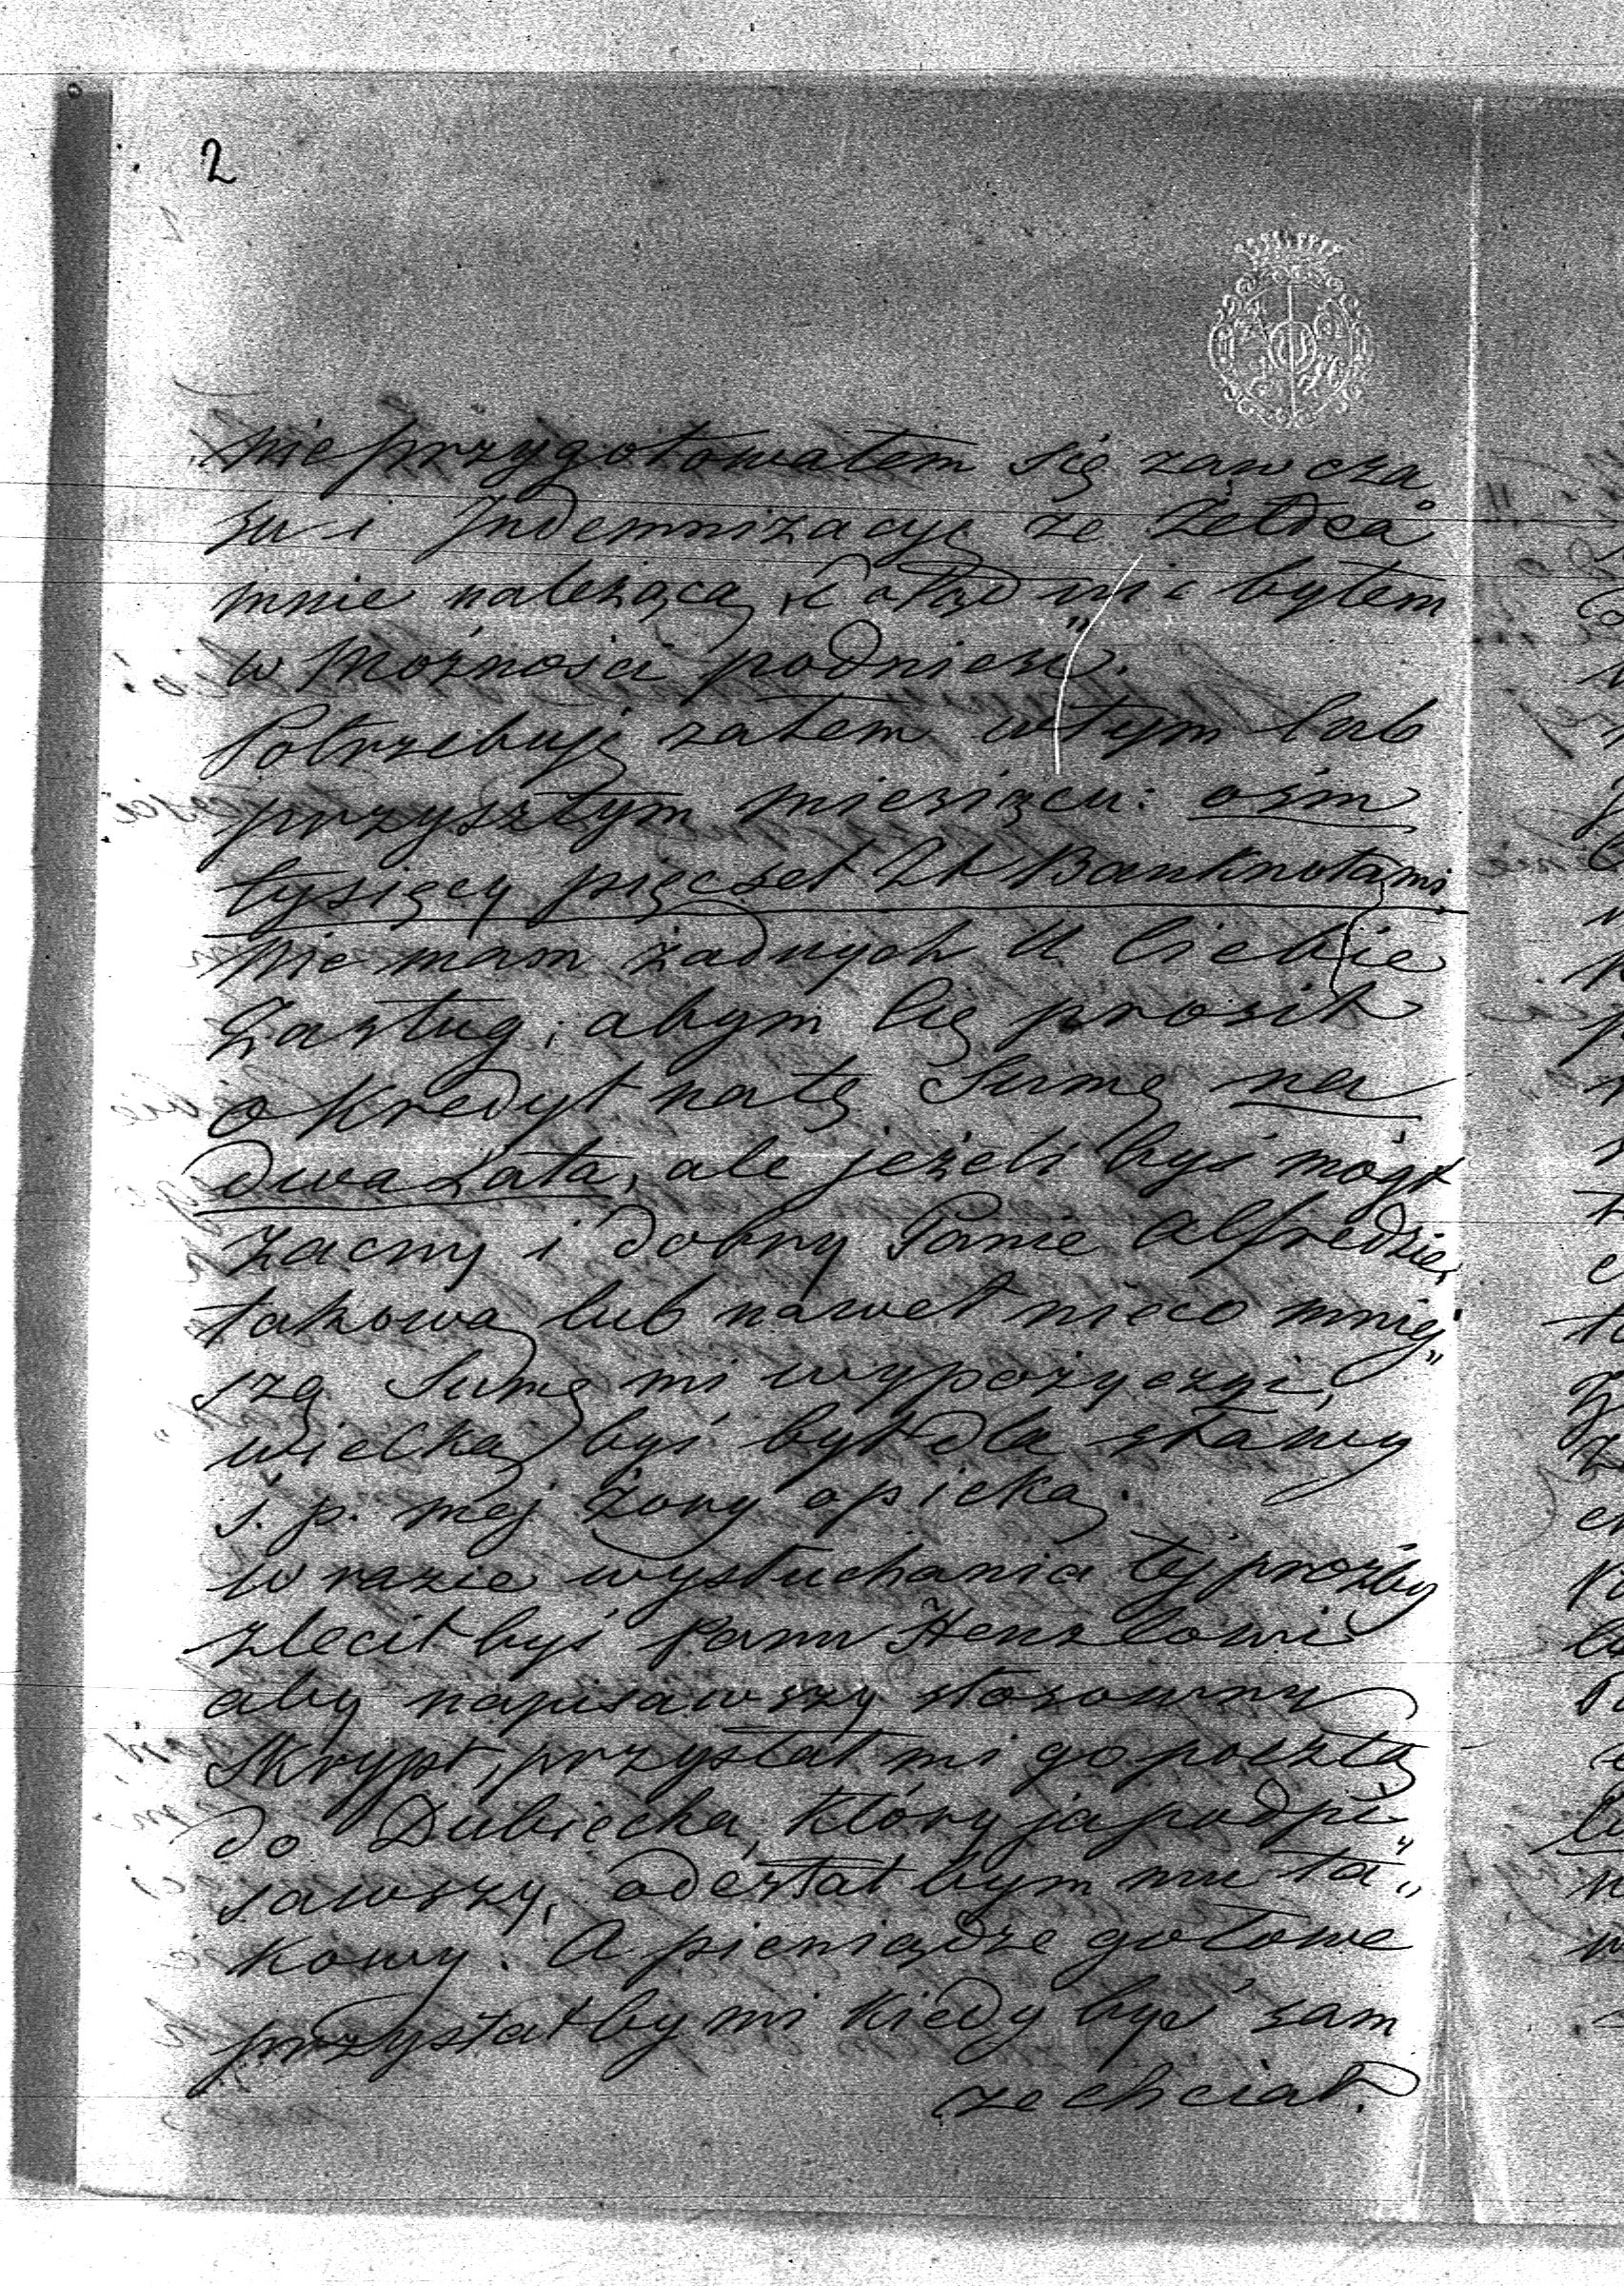 2
nie przygotowałem się zawcza„
su i Indemnizacyę ze
mnie należącą, dotąd nie byłem
w Możności podnieść.
Potrzebuję zatem w tym lub
przyszłym miesiącu: ośm
tysięcy pięcset Zł Banknotami
Nie mam żadnych U Ciebie
Zasług, abym Cię prosił
o Kredyt na tę Sumę na
dwa Lata, ale jeżeli byś mógł
zacny i dobry Panie Alfredzie,
takową lub nawet nieco mniej„
szą Sumę mi wypożyczyć,
wielką byś był dla sławy
ś. p. mej żony opieką.
W razie wysłuchania tej prośby
zlecił byś Panu Henzlowi
aby napisawszy stosowny
Skrypt, przysłał mi go pocztą
do Dubiecka, który ja podpi„
sawszy, odesłał bym mu ta„
kowy. A pieniądze gotowe
przysłał by mi kiedy byś sam
zechciał.